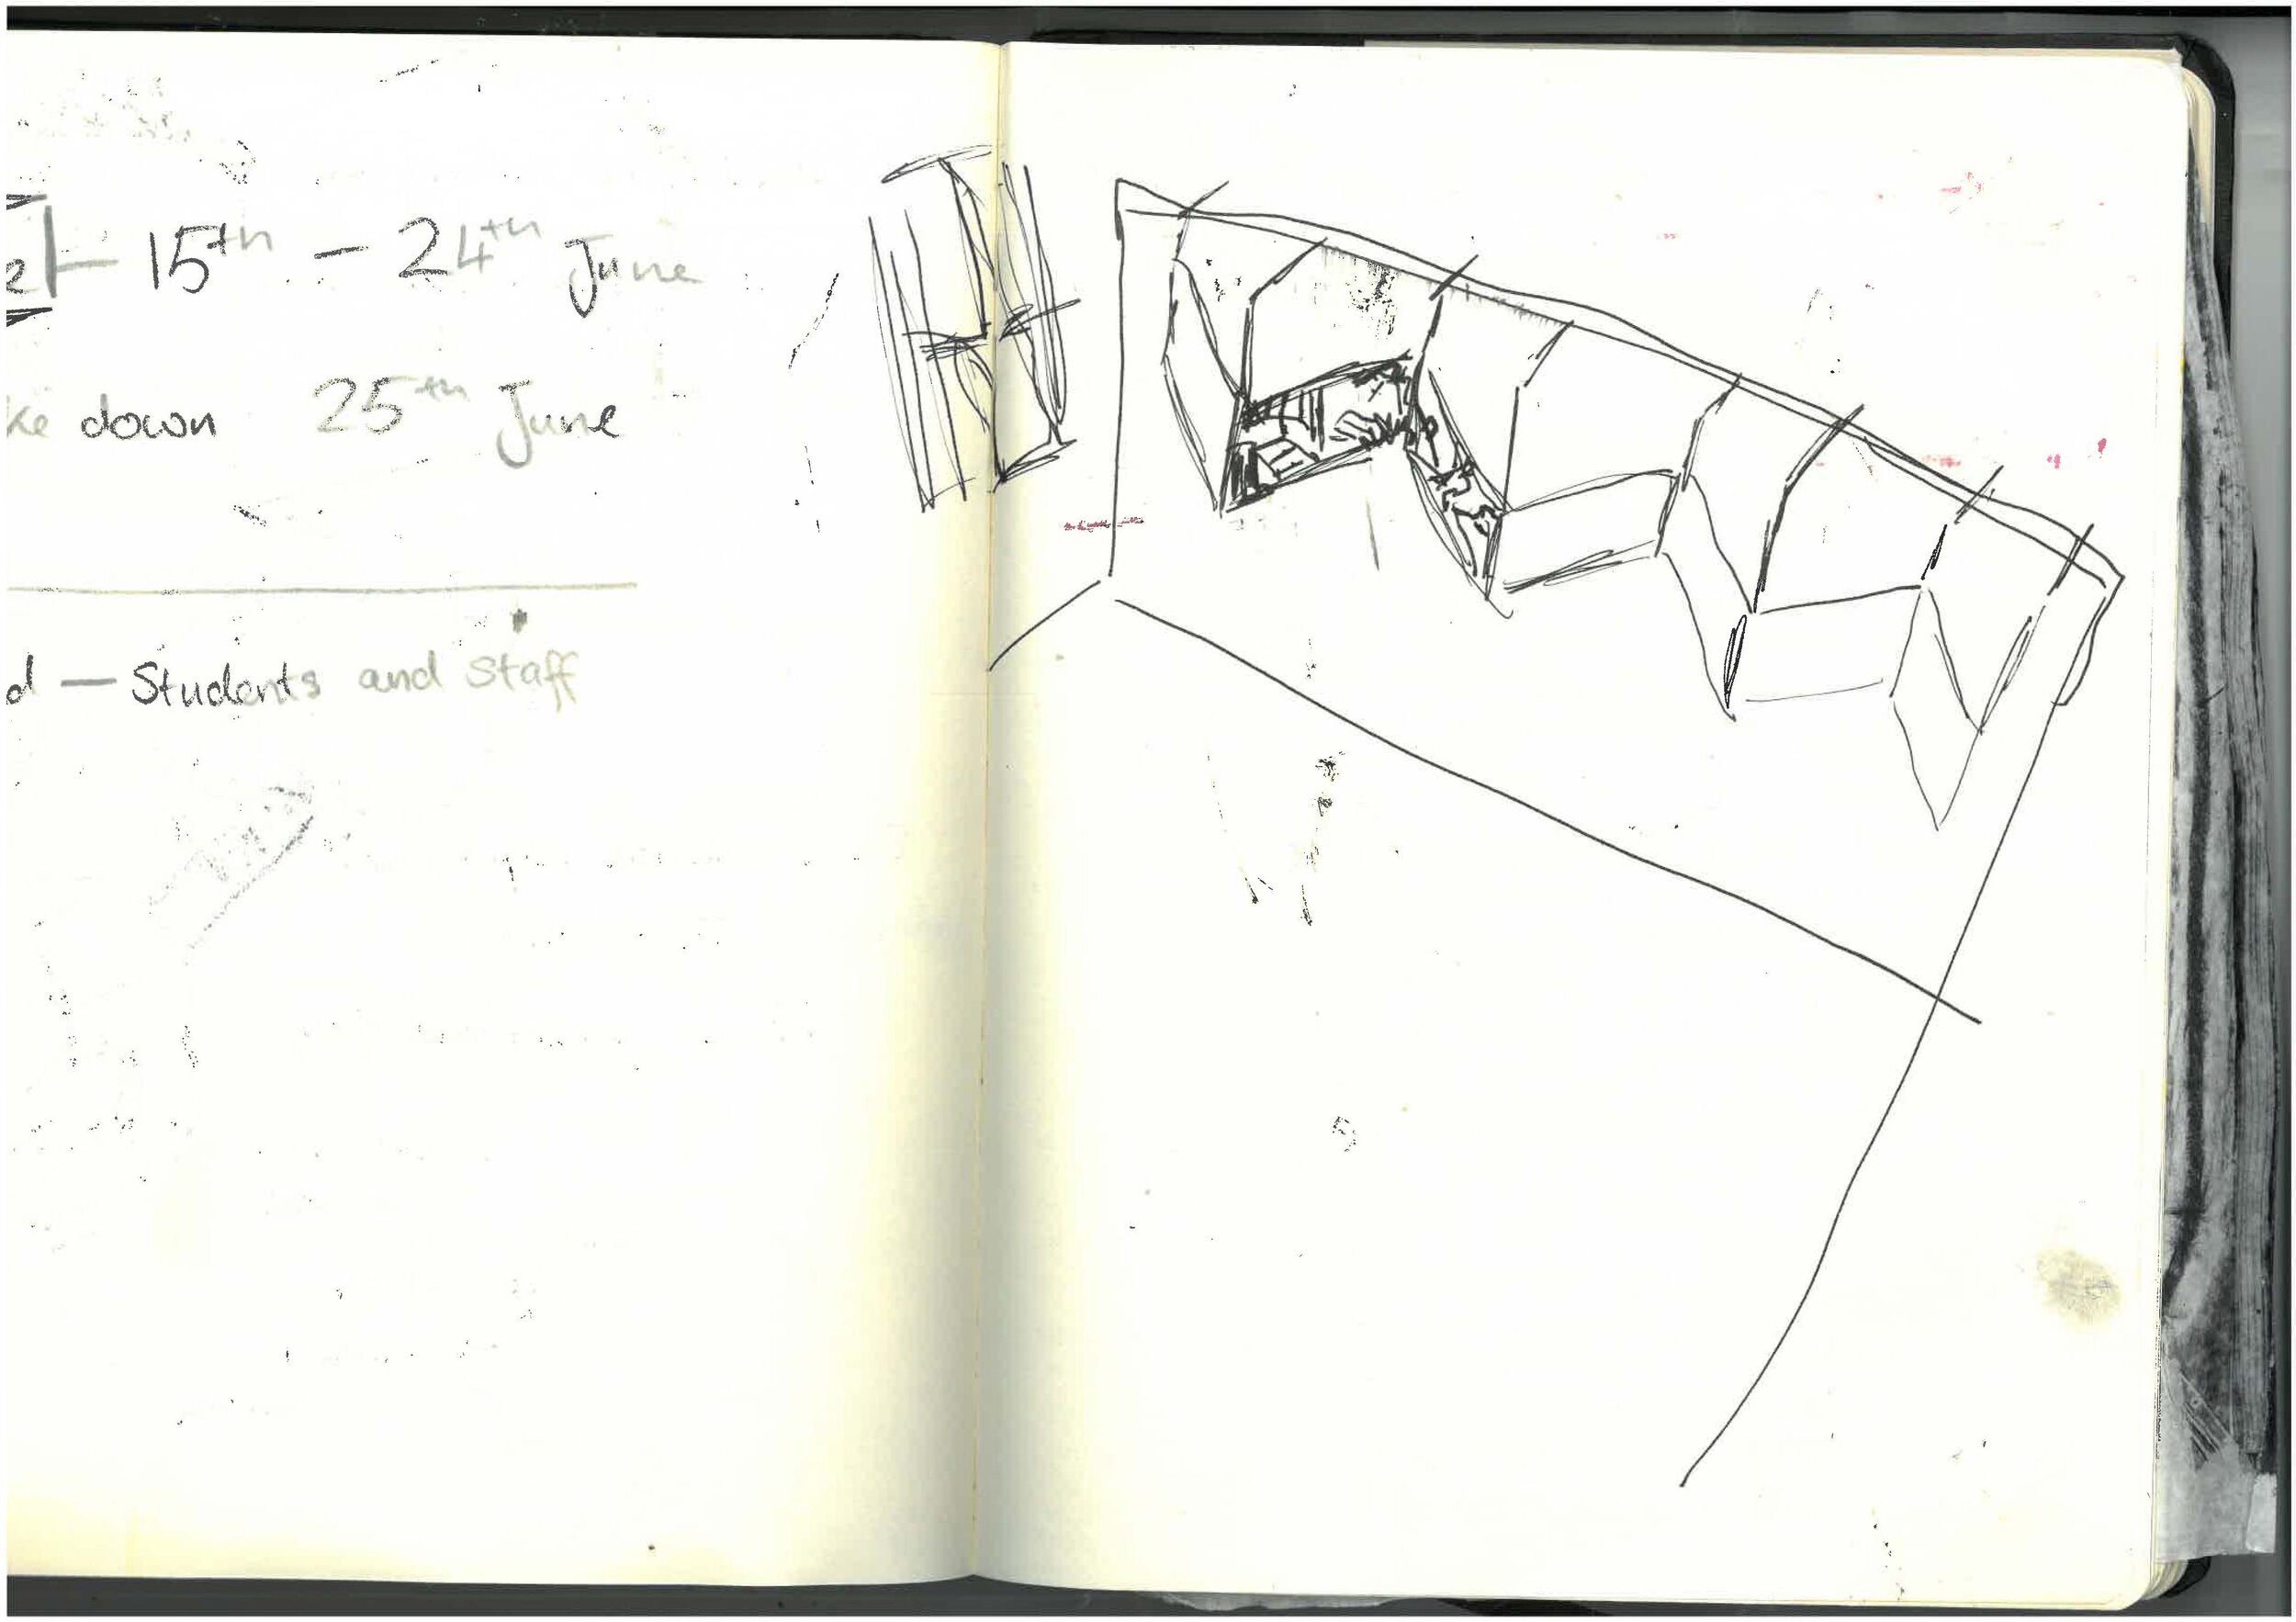 — 15th - 24th June
down 25th June
d — Students and Staff